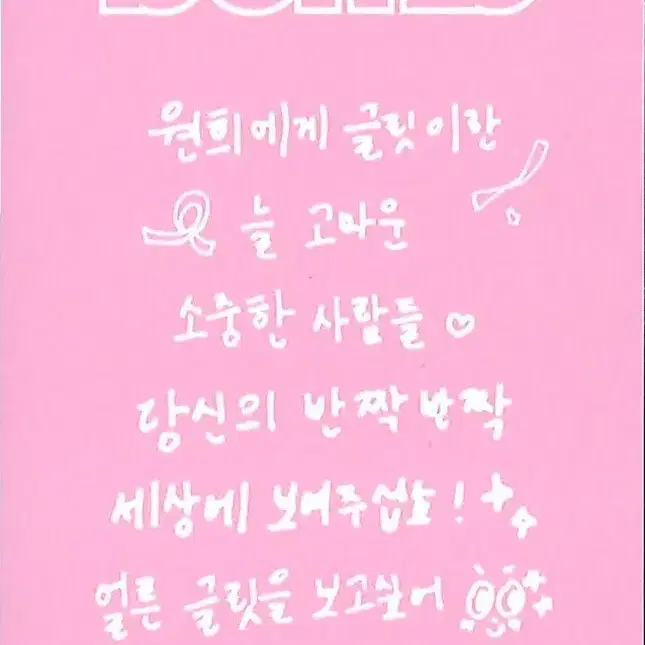 원희에게 글릿이란
늘 고마운
소중한 사람들
당신의 반짝반짝
세상에 보여주십쇼!
얼른 글릿을 보고싶어